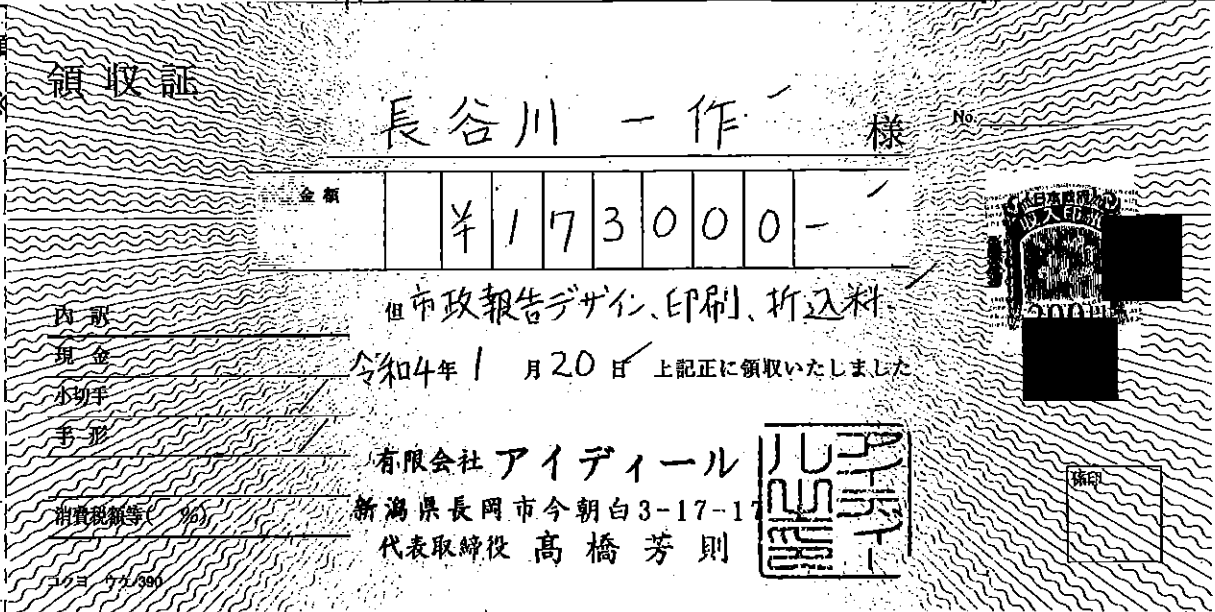 領収証
長谷川 一作 様
No.
金額 ¥173000-
但 市政報告デザイン、印刷、折込料
令和4年1月20日 上記正に領収いたしました
内訳
現金
小切手
手形
消費税額等( %)
有限会社 アイディール
新潟県長岡市今朝白3-17-17
代表取締役 髙橋芳則
係印
コクヨ ウケ-390
日本政府
収入印紙
200円